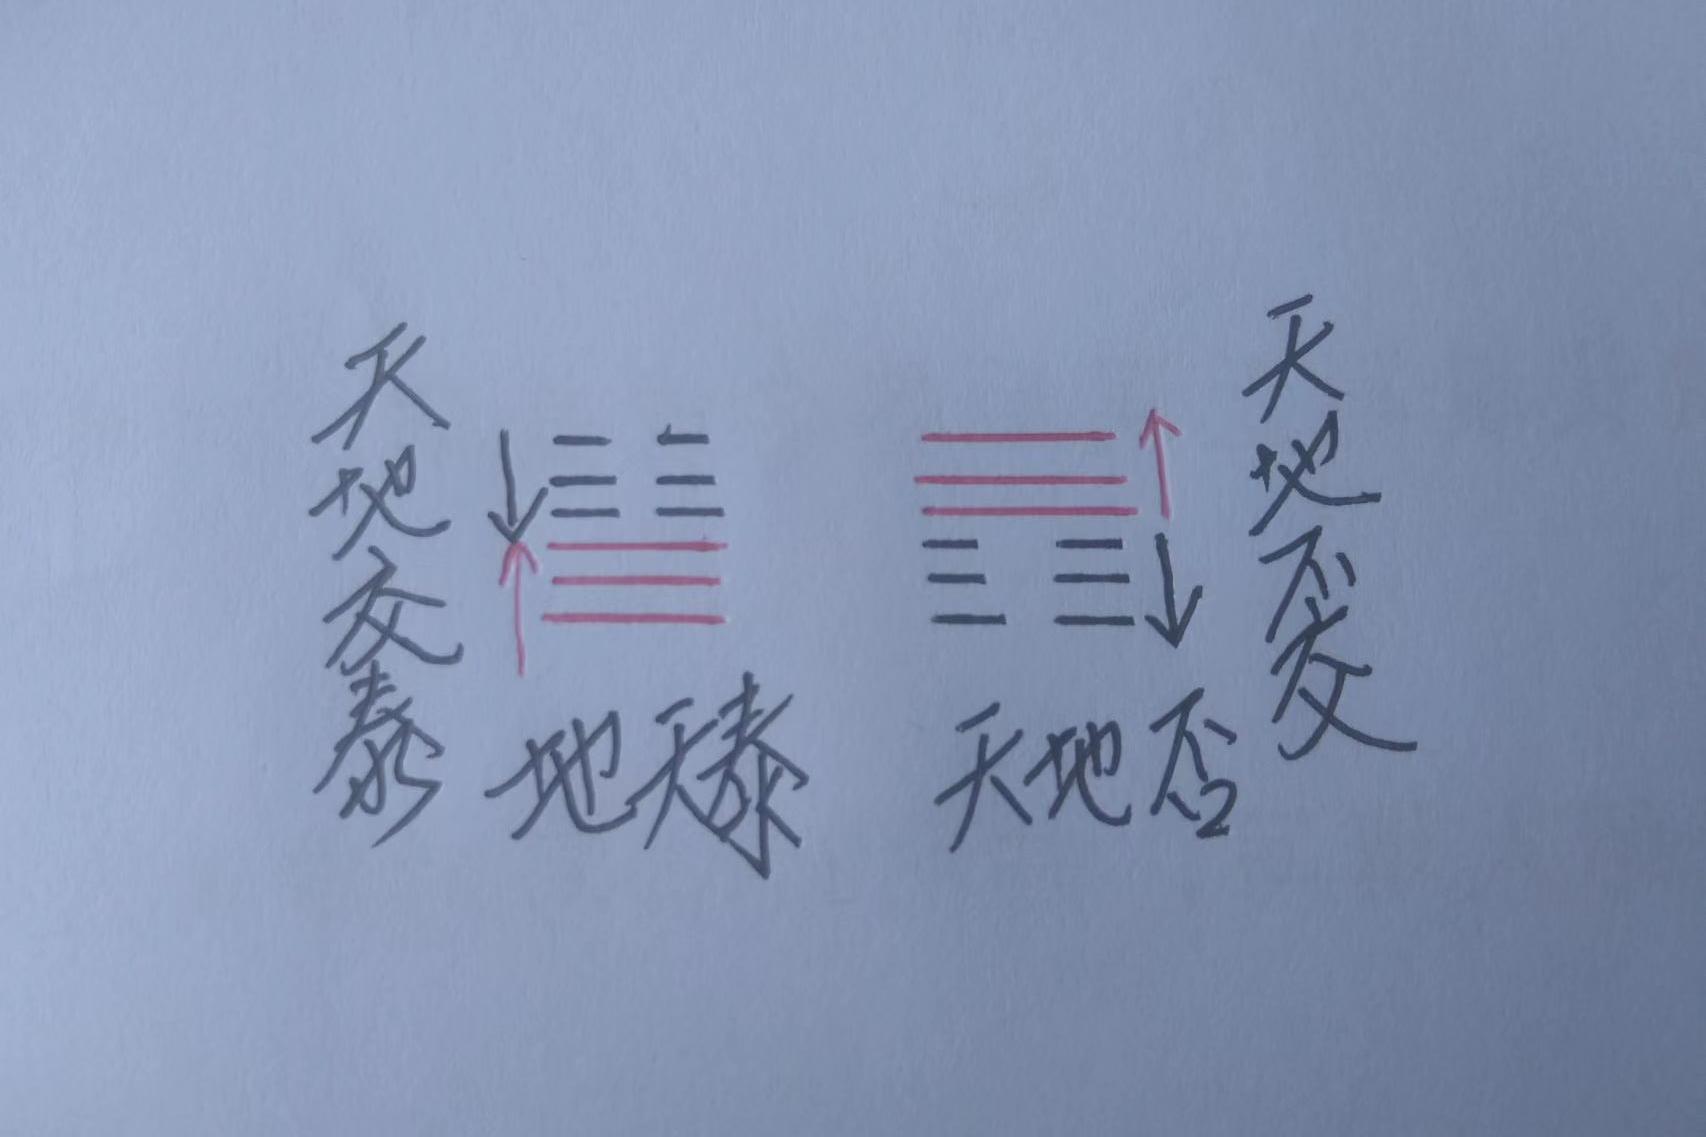 天地交泰
地天泰
天地否
天地不交